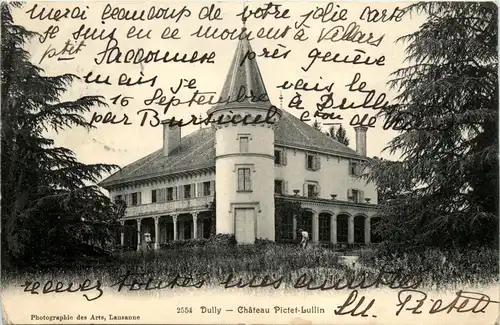 Merci beaucoup de votre jolie carte
Je suis en ce moment à Villars
ptit Saconnex près Genève
mais je vais le
10 septembre à Dully
par Bursinel
recevez toutes mes amitiés
2554 Dully - Château Pictet-Lullin
Photographie des Arts, Lausanne